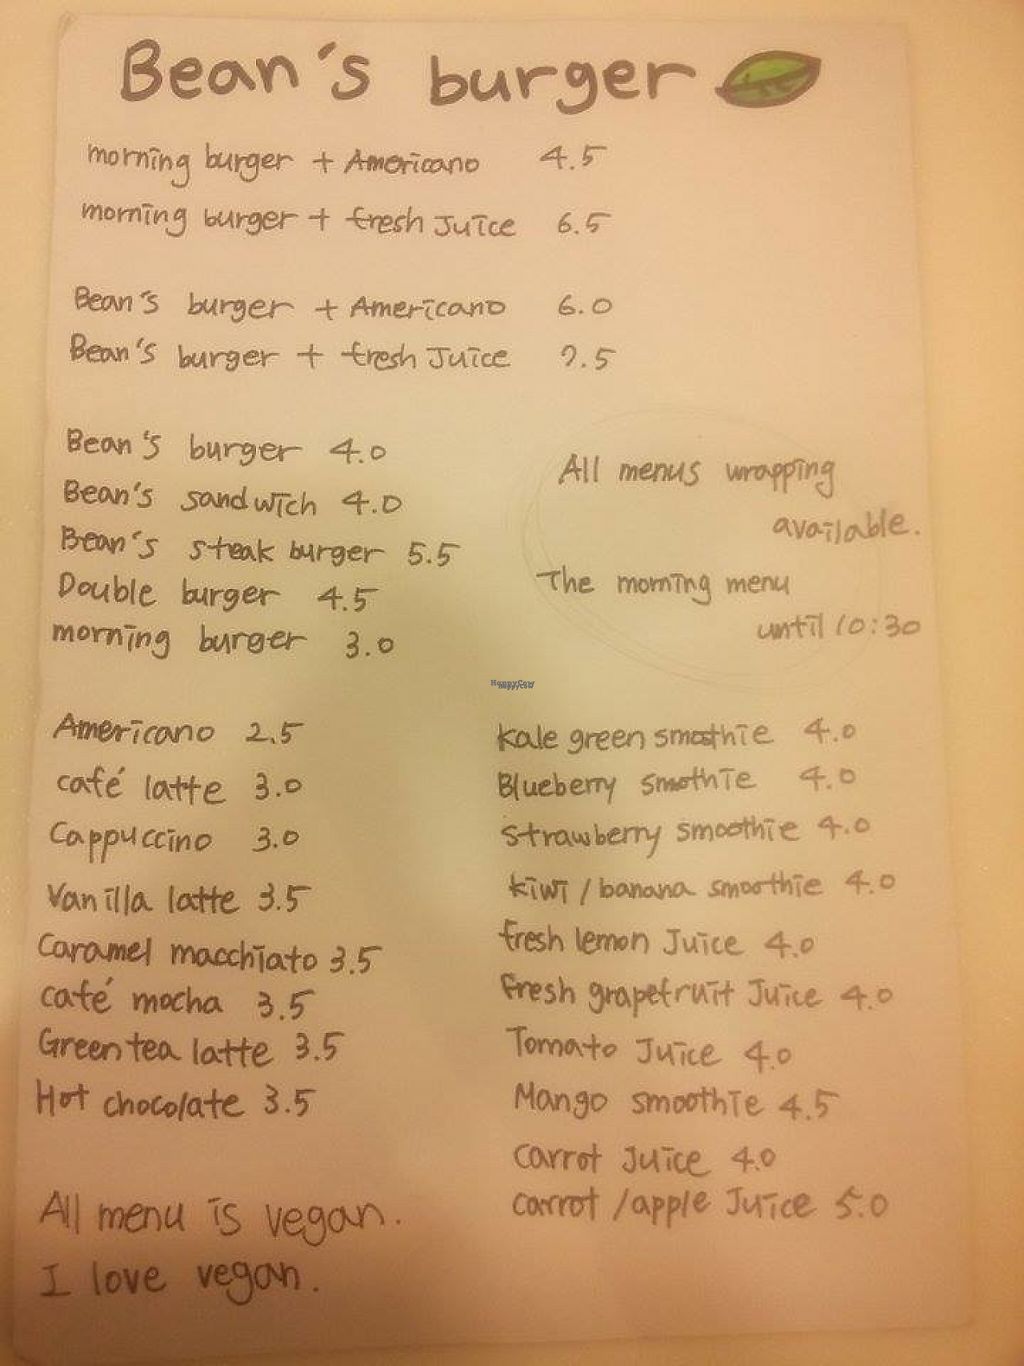 Bean's burger
morning burger + Americano 4.5
morning burger + fresh Juice 6.5
Bean's burger + Americano 6.0
Bean's burger + fresh Juice 7.5
Bean's burger 4.0
Bean's sandwich 4.0
Bean's steak burger 5.5
Double burger 4.5
morning burger 3.0
All menus wrapping
available.
The morning menu
until 10:30
HappyCow
Americano 2.5
café latte 3.0
Cappuccino 3.0
Vanilla latte 3.5
Caramel macchiato 3.5
café mocha 3.5
Green tea latte 3.5
Hot chocolate 3.5
kale green smoothie 4.0
Blueberry smothie 4.0
Strawberry smoothie 4.0
kiwi / banana smoothie 4.0
fresh lemon Juice 4.0
Fresh grapefruit Juice 4.0
Tomato Juice 4.0
Mango smoothie 4.5
carrot Juice 4.0
carrot / apple Juice 5.0
All menu is vegan.
I love vegan.